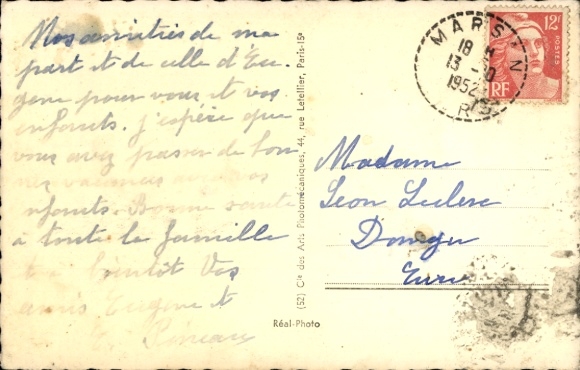 Nos amitiés de ma
part et de celle d'Eu
gene pour vous et vos
enfants. j'espère que
vous avez passer de bon
nes vacances avec vos
enfants. Bonne santé
à toute la famille
a bientôt Vos
amis Eugene et
(52) Cie des Arts Photomécaniques, 44, rue Letellier, Paris-15e
Réal-Photo
MARS
18 H
13
1952
12F
POSTES
RF
Madame
Leon Leclerc
Eure